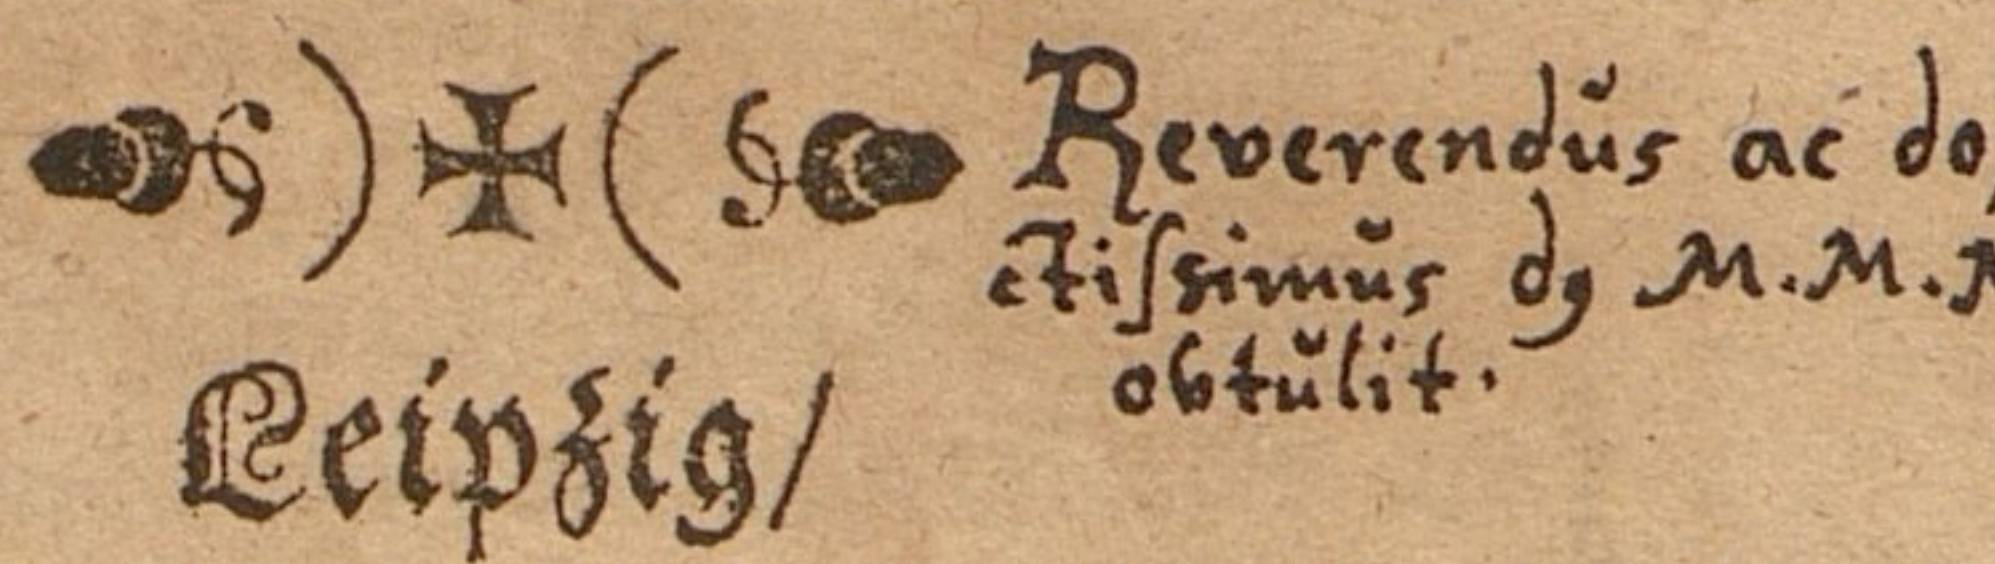 ) ✠ (
Reverendus ac do-
ctiſsimus dꝰ M. M.
obtulit.
Leipzig/